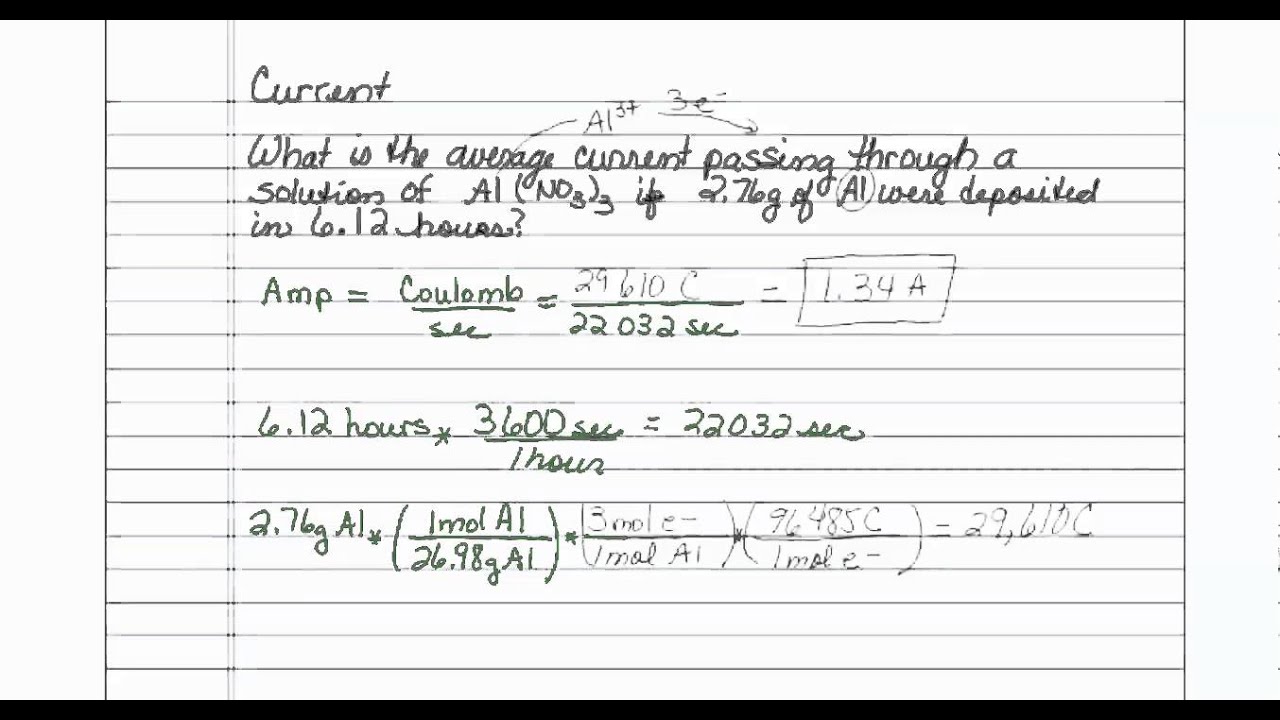 Current
Al³⁺ 3e⁻
What is the average current passing through a
solution of Al(NO₃)₃ if 2.76g of Al were deposited
in 6.12 hours?
Amp = Coulomb/sec = 29610 C/22032 sec = 1.34 A
6.12 hours * 3600 sec/1 hour = 22032 sec
2.76g Al * (1 mol Al/26.98g Al) * (3 mol e-/1 mol Al) * (96485C/1 mol e-) = 29,610 C